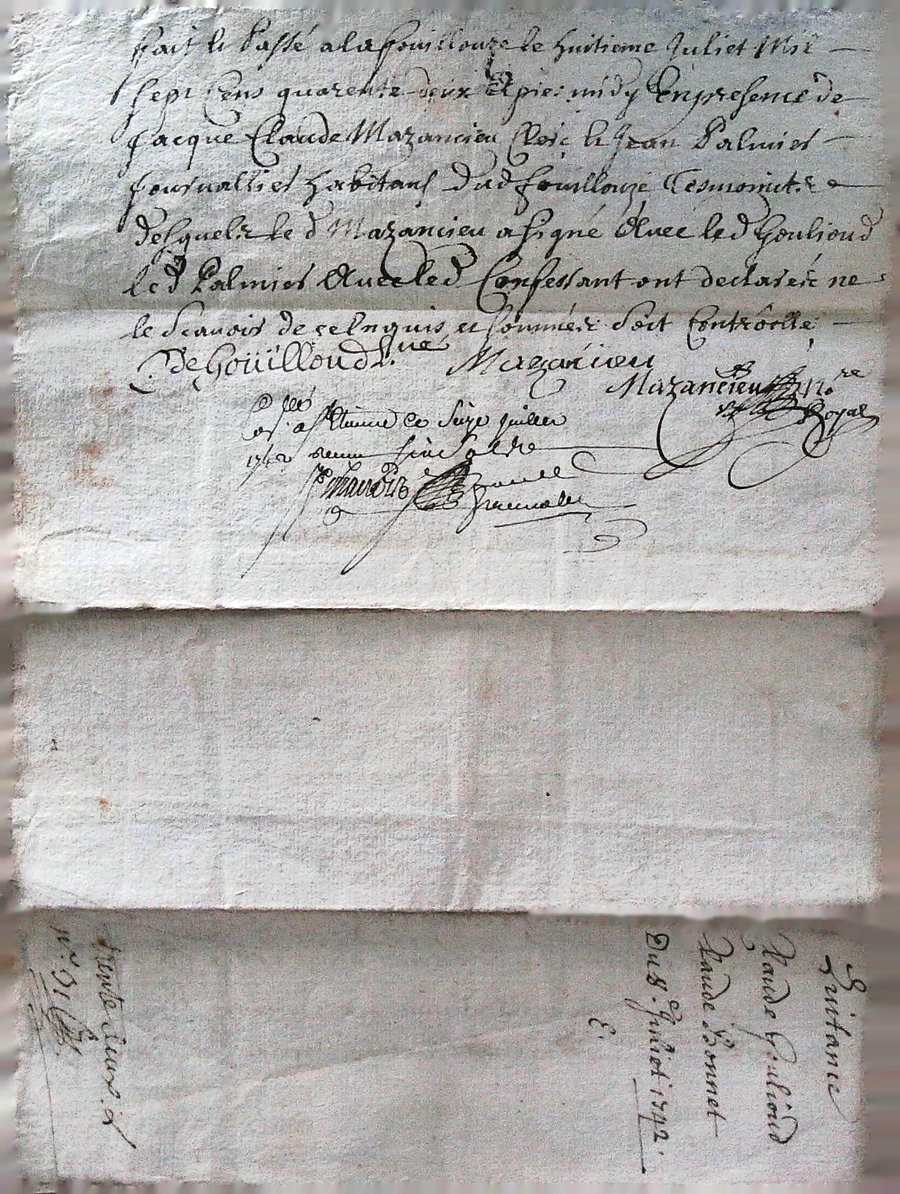 fait & Passé a la fouillouze le huitieme Juliet Mil
sept Cens quarente deux apres midy En presence de
Jacque Claude Mazancieu Clerc & Jean Palmier
journallier habitans dud fouillouze Tesmoins
desquels le d Mazancieu a signé Avec led Goulioud
le d Palmier Avec led Confessant ont declarés ne
le scavoir de ce Enquis et sommés soit Controllé
De Goüilloud Mazancieu
Mazancieu No.re
Royal
a st Etienne ce Juillet
1742
Quitance
Claude Gulioud
Claude Bonnet
Du 8.e Juliet 1742.
E.
trente deux
N.o 31